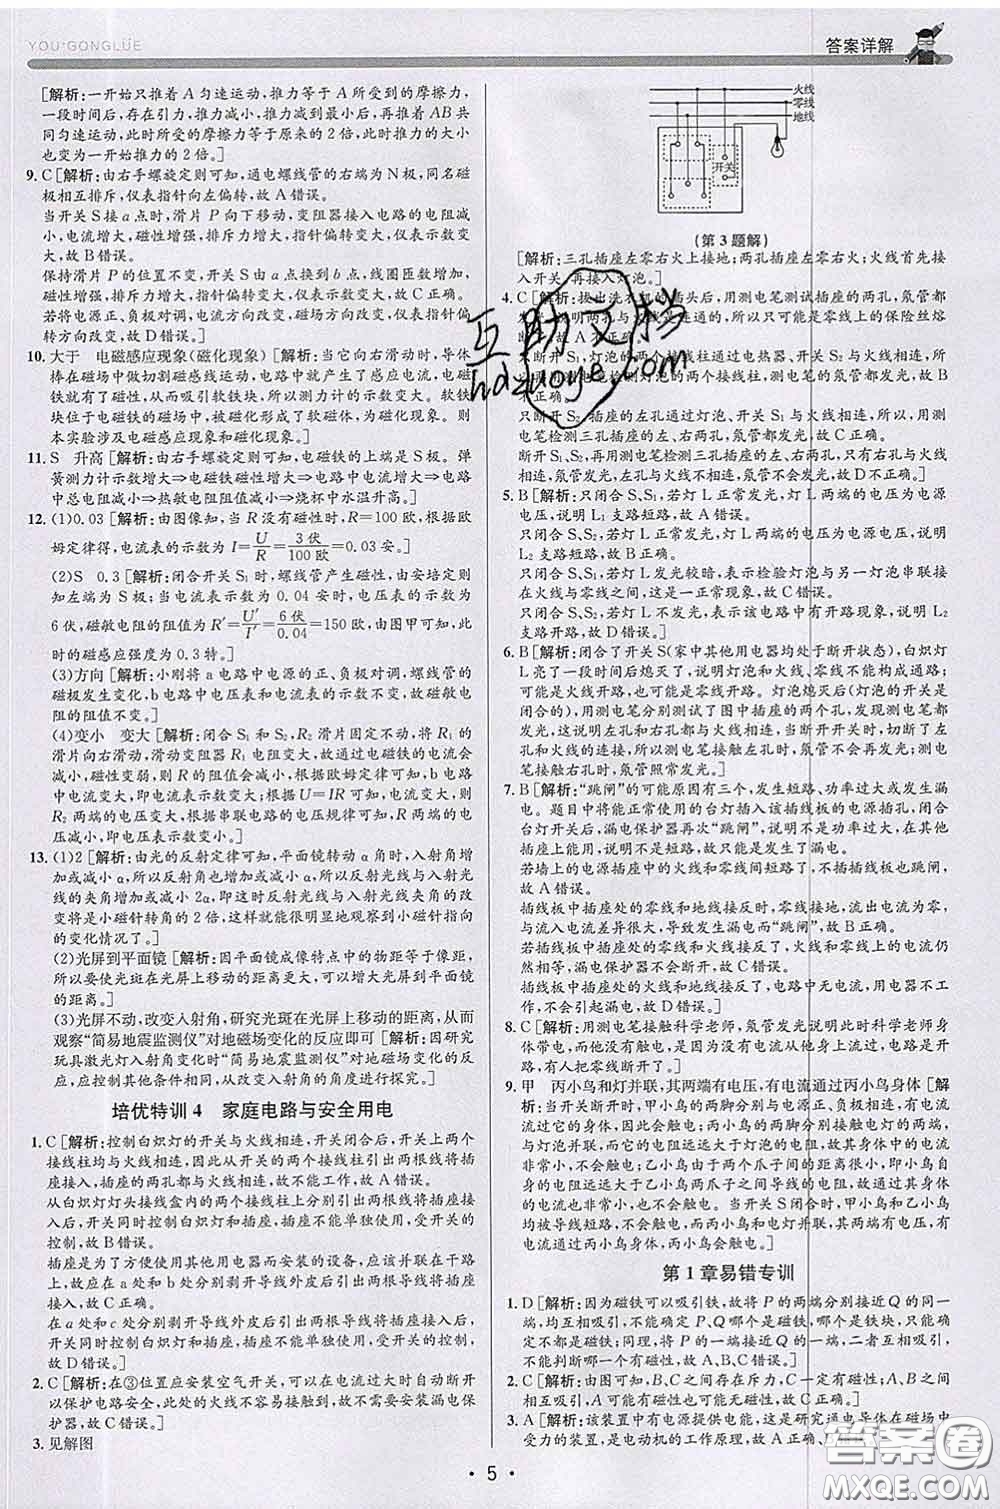 YOU·GONGLÜE
答案详解
[解析:一开始只推着A匀速运动,推力等于A所受到的摩擦力,
一段时间后,存在引力,推力减小,推力减到最小后,再推着AB共
同匀速运动,此时所受的摩擦力等于原来的2倍,此时推力的大小
也变为一开始推力的2倍。]
9. C[解析:由右手螺旋定则可知,通电螺线管的右端为N极,同名磁
极相互排斥,仪表指针向左偏转,故A错误。
当开关S接a点时,滑片P向下移动,变阻器接入电路的电阻减
小,电流增大,磁性增强,排斥力变大,指针偏转变大,示数变大,
故B错误。
保持滑片P的位置不变,开关S由a点换到b点,线圈匝数增加,
磁性增强,指针偏转变大,仪表示数变大,故C正确。
若将电源正、负极对调,电流方向改变,磁场方向改变,指针偏转
方向改变,故D错误。]
10. 大于 电磁感应现象(磁化现象)[解析:当它向右滑动时,导体
棒在磁场中做切割磁感线运动,电路中就产生了感应电流,电磁
铁就有了磁性,从而吸引软铁块,所以测力计的示数变大。软铁
块位于电磁铁的磁场中,被磁化形成了软磁体,为磁化现象。则
本实验涉及电磁感应现象和磁化现象。]
11. S 升高[解析:由右手螺旋定则可知,电磁铁的上端是S极。弹
簧测力计示数变大⇒电磁铁磁性增大⇒电路中电流增大⇒电路
中总电阻减小⇒热敏电阻阻值减小⇒烧杯中水温升高。]
12. (1)0.03[解析:由图像知,当R没有磁性时,R=100欧,根据欧
姆定律得,电流表的示数为I=U/R=3伏/100欧=0.03安。]
(2)S 0.3[解析:闭合开关S₁时,螺线管产生磁性,由安培定则
知左端为S极;当电流表的示数为0.04安时,电压表的示数为
6伏,磁敏电阻的阻值为R′=U′/I′=6伏/0.04=150欧,由图甲可知,此
时的磁感应强度为0.3特。]
(3)方向[解析:小刚将a电路中电源的正、负极对调,螺线管的
磁极发生变化,b电路中电压表和电流表的示数不变,故磁敏电
阻的阻值不变。]
(4)变小 变大[解析:闭合S₁和S₂,R₂滑片固定不动,将R₁的
滑片向右滑动,滑动变阻器R₁电阻变大,故通过电磁铁的电流会
减小,磁性变弱,则R的阻值会减小,根据欧姆定律可知,b电路中
的电流变大,即电流表示数变大;根据I=UR可知,电流变大,则
R₂两端的电压变大,根据串联电路的电压规律可知,R两端的电
压减小,即电压表示数变小。]
13. (1)2[解析:由光的反射定律可知,平面镜转动α角时,入射角增
加或减小α,当然反射角也增加或减小α,因此反射光线与入射光
线的夹角增加或减小2α,即此时反射光线与入射光线夹角的改
变将是小磁针转角的2倍,这样就能很明显地观察到小磁针指向
的变化情况了。]
(2)光屏到平面镜[解析:因成像特点中的物距等于像距,所
以要使光斑在光屏上移动的距离更大,可以增大光屏到平面镜
的距离。]
(3)光屏不动,改变入射角,研究光斑在光屏上的移动距离,从而
观察“简易地震监测仪”对地磁场变化的反应即可[解析:因研究
玩具激光灯入射角变化时“简易地震监测仪”对地磁场变化的反
应,故控制其他条件相同,从改变入射角的角度进行探究。]
培优特训4 家庭电路与安全用电
1. C[解析:控制白炽灯的开关与火线相连,开关闭合后,开关上两个
接线柱均与火线相连,因此从开关的两个接线柱引出两根导线将
插座接入后,插座的两孔都与火线相连,故不能工作,故A错误。
从白炽灯灯头接线盒内的两个接线柱上分别引出两根线将插座
接入后,开关同时控制白炽灯和插座,插座不能单独使用,受开关的
控制,故B错误。
插座是为了方便使用其他用电器而安装的设备,应该并联在干路
上,因此应该在a处和b处分别剥开导线外皮后引出两根导线将
插座接入,故C正确。
在a处和c处分别剥开导线外皮后引出两根导线将插座接入后,
开关同时控制白炽灯和插座,插座不能单独使用,受开关的控制,
故D错误。]
2. C[解析:在③位置应安装空气开关,可以在电流过大时自动断开
以保护电路安全,此处火线不容易直接接触,不会造成触电,因此
C错误。]
3. 见解图
火线
零线
地线
开关
(第3题解)
[解析:三孔插座左零右火上接地;两孔插座左零右火;火线首先接
入开关,再接入灯泡。]
4. C[解析:拔出洗衣机的插头后,用测电笔测试插座的两孔,氖管都
发光,说明两孔与火线是连通的,所以不可能是零线的保险丝熔
断,故A不正确。
只断开S₁,灯泡的两个接线柱通过电热器、开关与火线相连,所
以用测电笔检测灯泡的两个接线柱,测电笔的氖管都发光,故B不
正确。
只断开S₂,插座的左孔通过灯泡、开关S₁与火线相连,所以,用测
电笔检测三孔插座的左、右两孔,氖管都发光,故C正确。
断开S₁、S₂,插座的左孔没有与火线相连,只有右孔与火线
相连,氖管发光,左孔与火线不相连,氖管不发光,故D不正确。]
5. B[解析:只闭合S、S₁,若灯L正常发光,灯L两端的电压为电源
电压,说明L₁支路短路,故A错误。
只闭合S、S₂,若灯L正常发光,灯L两端的电压为电源电压,说明
L₂支路短路,故B正确。
只闭合S、S₁,若灯L发光较暗,表示检验灯与另一灯泡串联接
在火线与零线之间,这是一种正常现象,故C错误。
只闭合S、S₂,若灯L不发光,表示该电路中有开路现象,说明L₂
支路开路,故D错误。]
6. B[解析:闭合了开关S(家中其他用电器均处于断开状态),白炽灯
L亮了一段时间后熄灭了,说明灯泡、火线、零线不能构成通路;
可能是火线开路,也可能是零线开路。灯泡熄灭后(灯泡的开关是
闭合的),用测电笔分别测试了图中插座的两个孔,发现测电笔都
发光,这说明左孔和右孔都与火线相通,当断开开关时,切断了左
孔与火线的连接,所以当测电笔接触左孔时,氖管不再发光;测电
笔接触右孔时,氖管照常发光。]
7. B[解析:“跳闸”的可能原因有三个,发生短路、功率过大、发生漏
电。题目中将能正常使用的台灯插入该插线板的电源插孔,闭合
台灯开关后,漏电保护器再次“跳闸”,说明不是功率过大,在开关
闭合前没有“跳闸”,说明不是短路,应是发生了漏电。
若墙上的插座中的火线和零线接反了,不插插线板也会“跳闸”,
故A错误。
插线板中插座处的零线和地线接反时,零线接地,电流流入大地,
与流入电流差异很大,导致了“跳闸”,故B正确。
若插线板中插座处的零线和火线接反了,火线和零线的电流仍
然相等,漏电保护器不会断开,故C错误。
插线板中插座处的火线和地线接反时,用电器不工作,没有电流,
不会引起漏电,故D错误。]
8. C[解析:用测电笔接触科学老师,氖管发光说明此时科学老师
身体带电,而他无触电感觉,是因为没有电流从他身上流过,电路
开路,只有人双脚站在绝缘物体上时,才会没有电流从人体流过。]
9. 甲 丙小鸟和灯并联,其两端有电压,有电流流过丙小鸟身体[解
析:由图可知,甲小鸟的两爪子间连着灯泡,电流流过灯泡而没有
流过它,其余部分没有构成回路,因此没有触电;丙小鸟的两爪子
与灯泡并联,而它的电阻远远大于灯泡的电阻,因此其身体中的电流
非常小,不会触电;乙小鸟与两个爪子间的导线并联,而乙小鸟
身体的电阻远远大于乙小鸟两爪子之间导线的电阻,故其身体中
的电流也非常小,也不会触电。当开关S闭合时,甲小鸟和乙小鸟
均被导线短路,不会触电,而丙小鸟和电灯并联,其两端有电压,有
电流通过丙小鸟身体,丙小鸟会触电。]
第1章易错专训
1. D[解析:因为磁铁可以吸引铁,故将P的两端分别接近Q的同一
端,均互相吸引,不能确定P、Q哪个是磁铁,哪个是铁块,只能确
定不都是磁铁;同理,将P的一端接近Q的任一端,二者互相吸引,
不能判断哪一个有磁性,故A、B、C错误。]
2. B[解析:因为乙、丙之间存在斥力,故乙、丙一定都有磁性,而甲、乙
相互吸引,故甲可能有磁性,也可能无磁性,故B正确。]
3. A[解析:该装置中有电源提供电能,这是研究通电导线在磁场中
受力的装置,是电动机的工作原理,故A正确。]
· 5 ·
互助文档
hdzuoye.com
答案圈
MXQE.COM